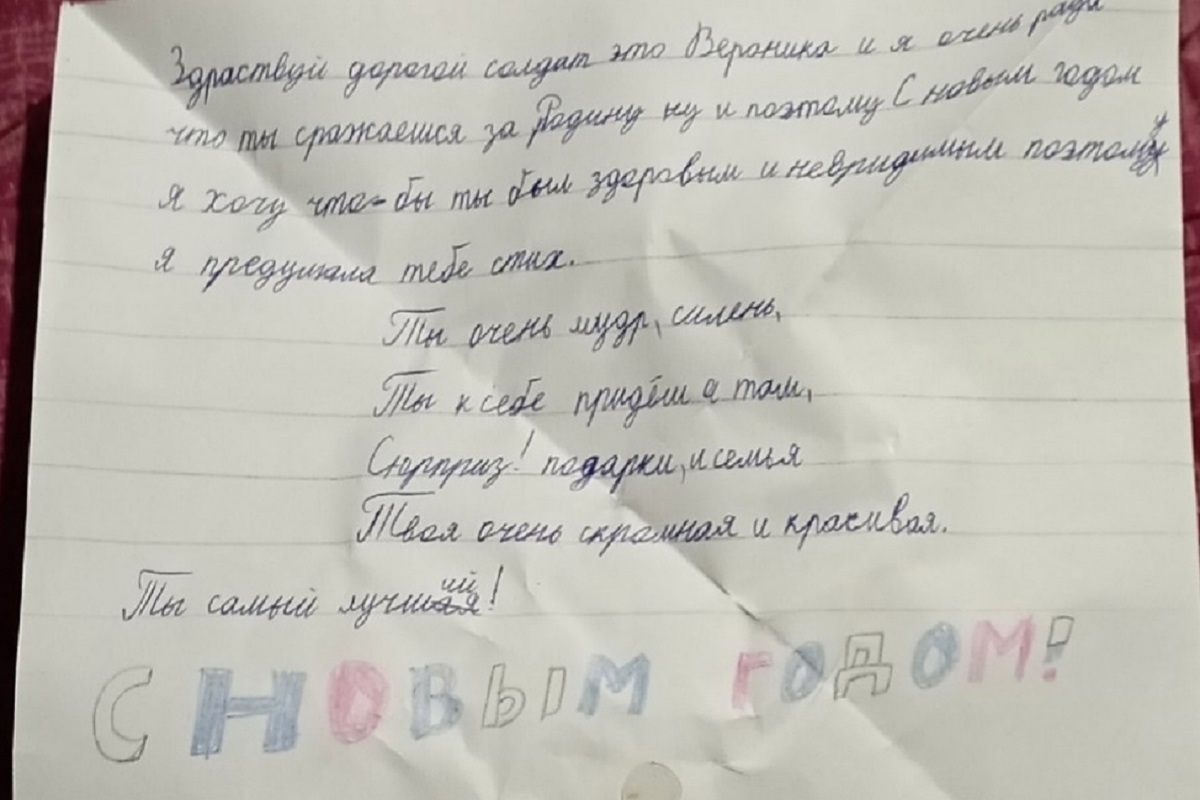 Здраствуй дорогой солдат это Вероника и я очень рада
что ты сражаешся за Родину ну и поэтому С новым годом
я хочу что-бы ты был здоровым и невридимым поэтому
я предумала тебе стих.
Ты очень мудр, силень,
Ты к себе придёш а там,
Сюрприз! подарки, и семья
Твоя очень скромная и красивая.
Ты самый лучший!
С НОВЫМ ГОДОМ!